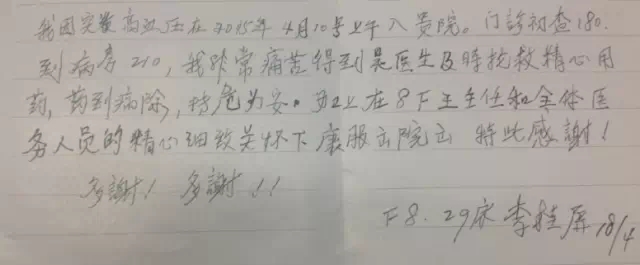 我因突发高血压在2015年4月10号上午入贵院。门诊初查180.
到病房210,我非常痛苦得到吴医生及時抢救精心用
药,药到病除,转危为安。加上在8下王主任和全体医
务人员的精心细致关怀下康服出院 特此感謝!
多謝! 多謝!!
F8.29床 李桂屏 18/4